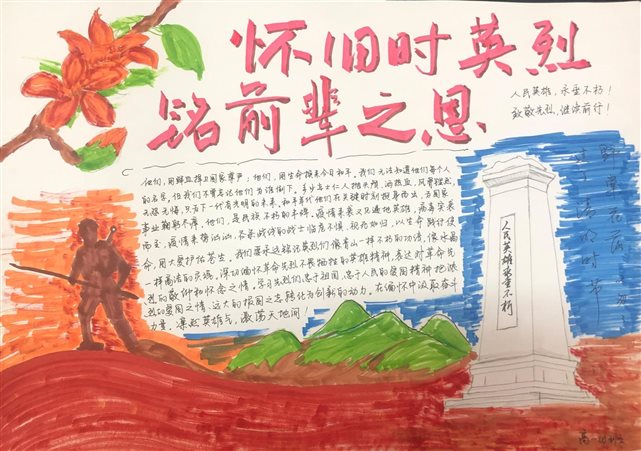 怀旧时英烈
铭前辈之恩
人民英雄，永垂不朽！
致敬先烈，继续前行！
他们，用鲜血捍卫国家尊严；他们，用生命换来今日和平。我们无法知道他们每个人
的名字，但我们不曾忘记他们为谁倒下。多少志士仁人抛头颅、洒热血，只曾经
无怨无悔，只为下一代有光明的未来，和平年代他们在关键时刻挺身而出，为国家
事业鞠躬尽瘁，他们，是民族不朽的丰碑。疫情未袭又见遍地英雄，病毒突袭
而至，疫情来势汹汹，白衣战线的战士临危不惧，视死如归，以生命践行使
命，用大爱护佑苍生，我们要永远铭记英烈们像青山一样不朽的功绩，像水晶
一样高洁的灵魂，深切缅怀革命先烈不畏牺牲的英雄精神，表达对革命先
烈的敬仰和怀念之情，学习先烈们忠于祖国、忠于人民的爱国精神把浓
烈的爱国之情、远大的报国之志转化为创新的动力，在缅怀中汲取奋斗
力量，凛然英雄与，激荡天地间！
人民英雄永垂不朽
高一10班